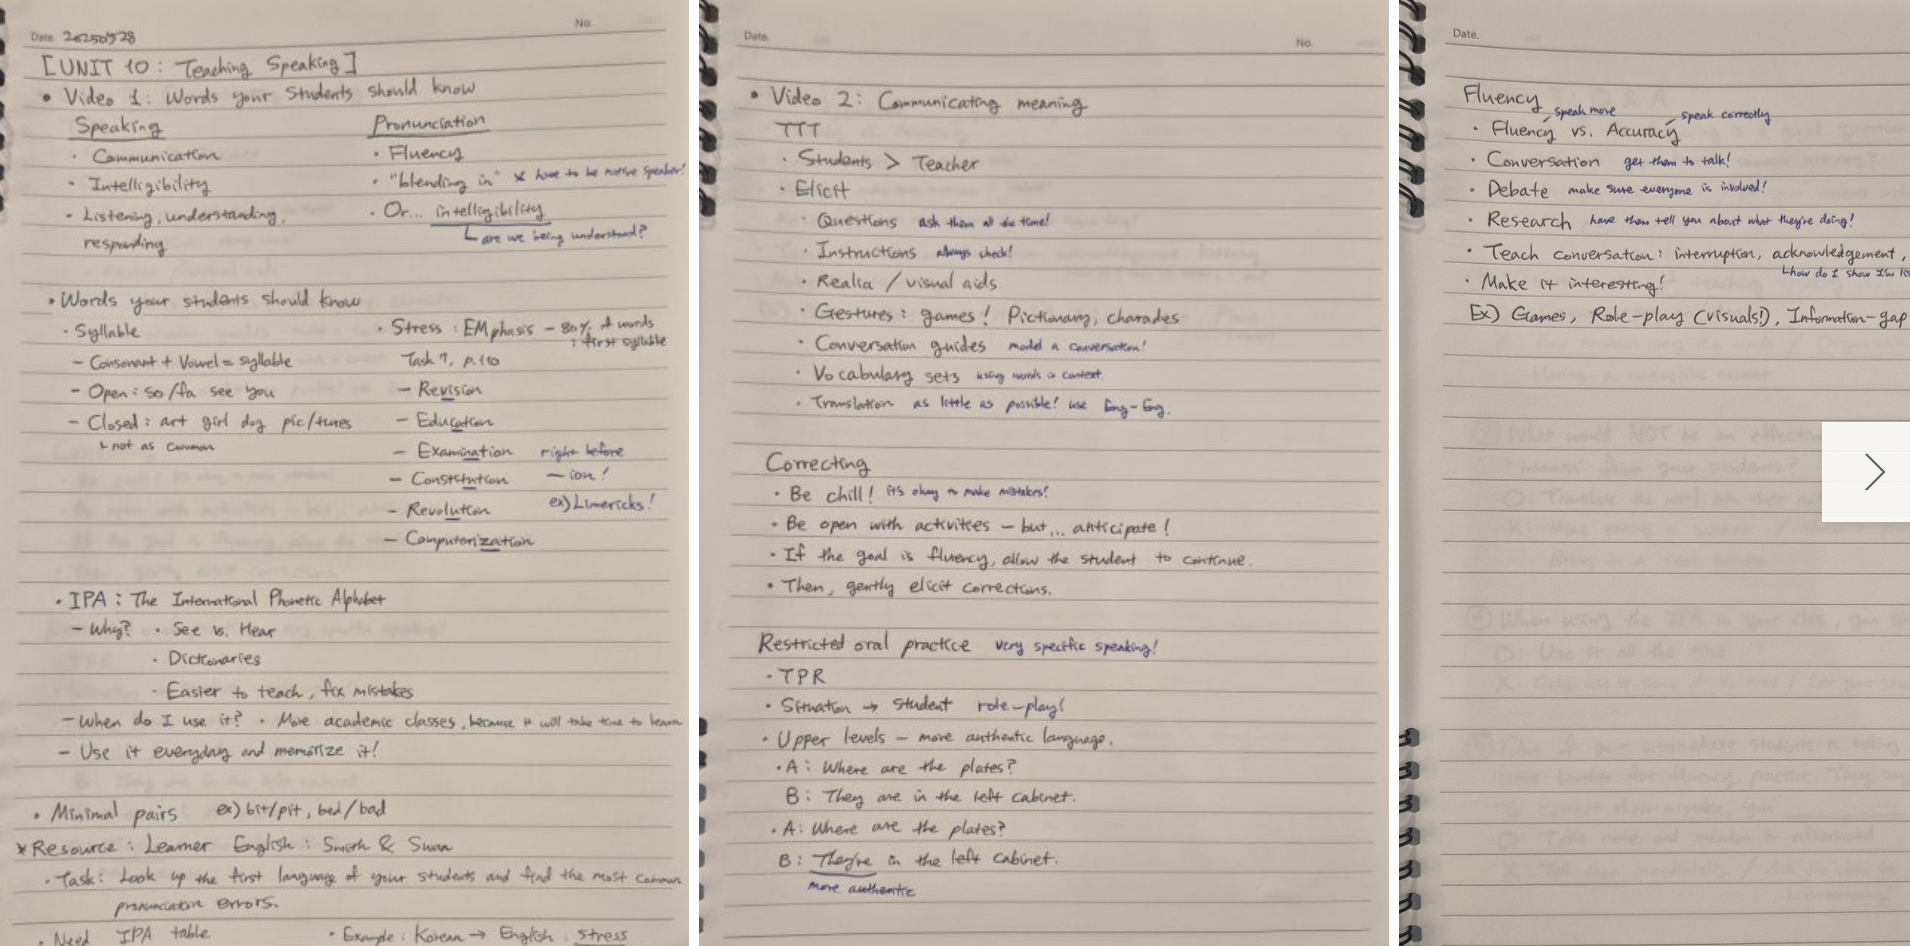 No.
Date. 20250528
[UNIT 10: Teaching Speaking]
• Video 1: Words your students should know
Speaking
· Communication
· Intelligibility
· Listening, understanding,
responding
Pronunciation
· Fluency
· "blending in" x have to be native speaker!
· Or... intelligibility
are we being understand?
• Words your students should know
· Syllable
- Consonant + Vowel = syllable
- Open: so/fa see you
- Closed: art girl dog pic/tures
not as common
· Stress: EMphasis - 80% of words
: first syllable
Task 7, p.110
- Revision
- Education
- Examination right before
- Constitution -ion!
- Revolution ex) Limericks!
- Computerization
· IPA: The International Phonetic Alphabet
- Why? · See vs. Hear
· Dictionaries
· Easier to teach, fix mistakes
- When do I use it? · More academic classes, because it will take time to learn
- Use it everyday and memorize it!
• Minimal pairs ex) bit/pit, bed/bad
* Resource: Learner English: Smith & Swan
· Task: Look up the first language of your students and find the most common
pronunciation errors.
· Need IPA table · Example: Korean → English: stress
Date.
No.
• Video 2: Communicating meaning
TTT
· Students > Teacher
· Elicit
· Questions ask them all the time!
· Instructions always check!
· Realia / visual aids
· Gestures: games! Pictionary, charades
· Conversation guides model a conversation!
· Vocabulary sets using words in context.
· Translation as little as possible! use Eng-Eng.
Correcting
· Be chill! it's okay to make mistakes!
· Be open with activities - but... anticipate!
· If the goal is fluency, allow the student to continue.
· Then, gently elicit corrections.
Restricted oral practice very specific speaking!
· TPR
· Situation → student role-play!
· Upper levels - more authentic language.
· A: Where are the plates?
B: They are in the left cabinet.
· A: Where are the plates?
B: They're in the left cabinet.
more authentic
Date.
Fluency
speak more speak correctly
· Fluency vs. Accuracy
· Conversation get them to talk!
· Debate make sure everyone is involved!
· Research have them tell you about what they're doing!
· Teach conversation: interruption, acknowledgement,
how do I show I'm
· Make it interesting!
Ex) Games, Role-play (visuals!), Information-gap